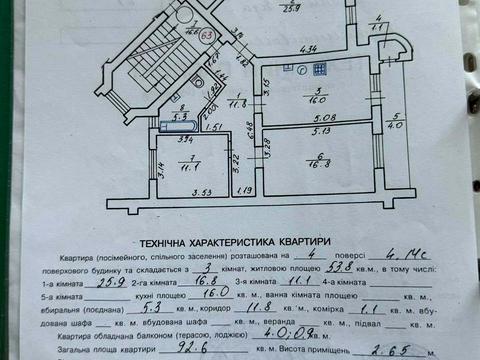 2
25.9
1
16.6
63
3.14
1.82
4.34
4
1.1
1.67
8
5.3
2.09
1.51
3.94
1
11.8
3.15
3
16.0
5.08
5
4.0
6.48
5.13
3.28
6
16.8
7
11.1
3.14
3.53
3.22
1.19
ТЕХНІЧНА ХАРАКТЕРИСТИКА КВАРТИРИ
Квартира (посімейного, спільного заселення) розташована на 4 поверсі 4,14с
поверхового будинку та складається з 3 кімнат, житловою площею 53.8 кв.м., в тому числі:
1-а кімната 25.9 2-га кімната 16.8 3-я кімната 11.1 4-а кімната
5-а кімната кухні площею 16.0 кв. м., ванна кімната площею кв. м.,
вбиральня (поєднана) 5.3 кв. м., коридор 11.8 кв. м., комірка 1.1 кв. м. вбу-
дована шафа кв. м., вбудована шафа кв. м., веранда кв. м., підвал кв. м.
Квартира обладнана балконом (терасою, лоджією) 4.0; 0.9 кв. м.
Загальна площа квартири 92.6 кв. м. Висота приміщень 2.65 м.